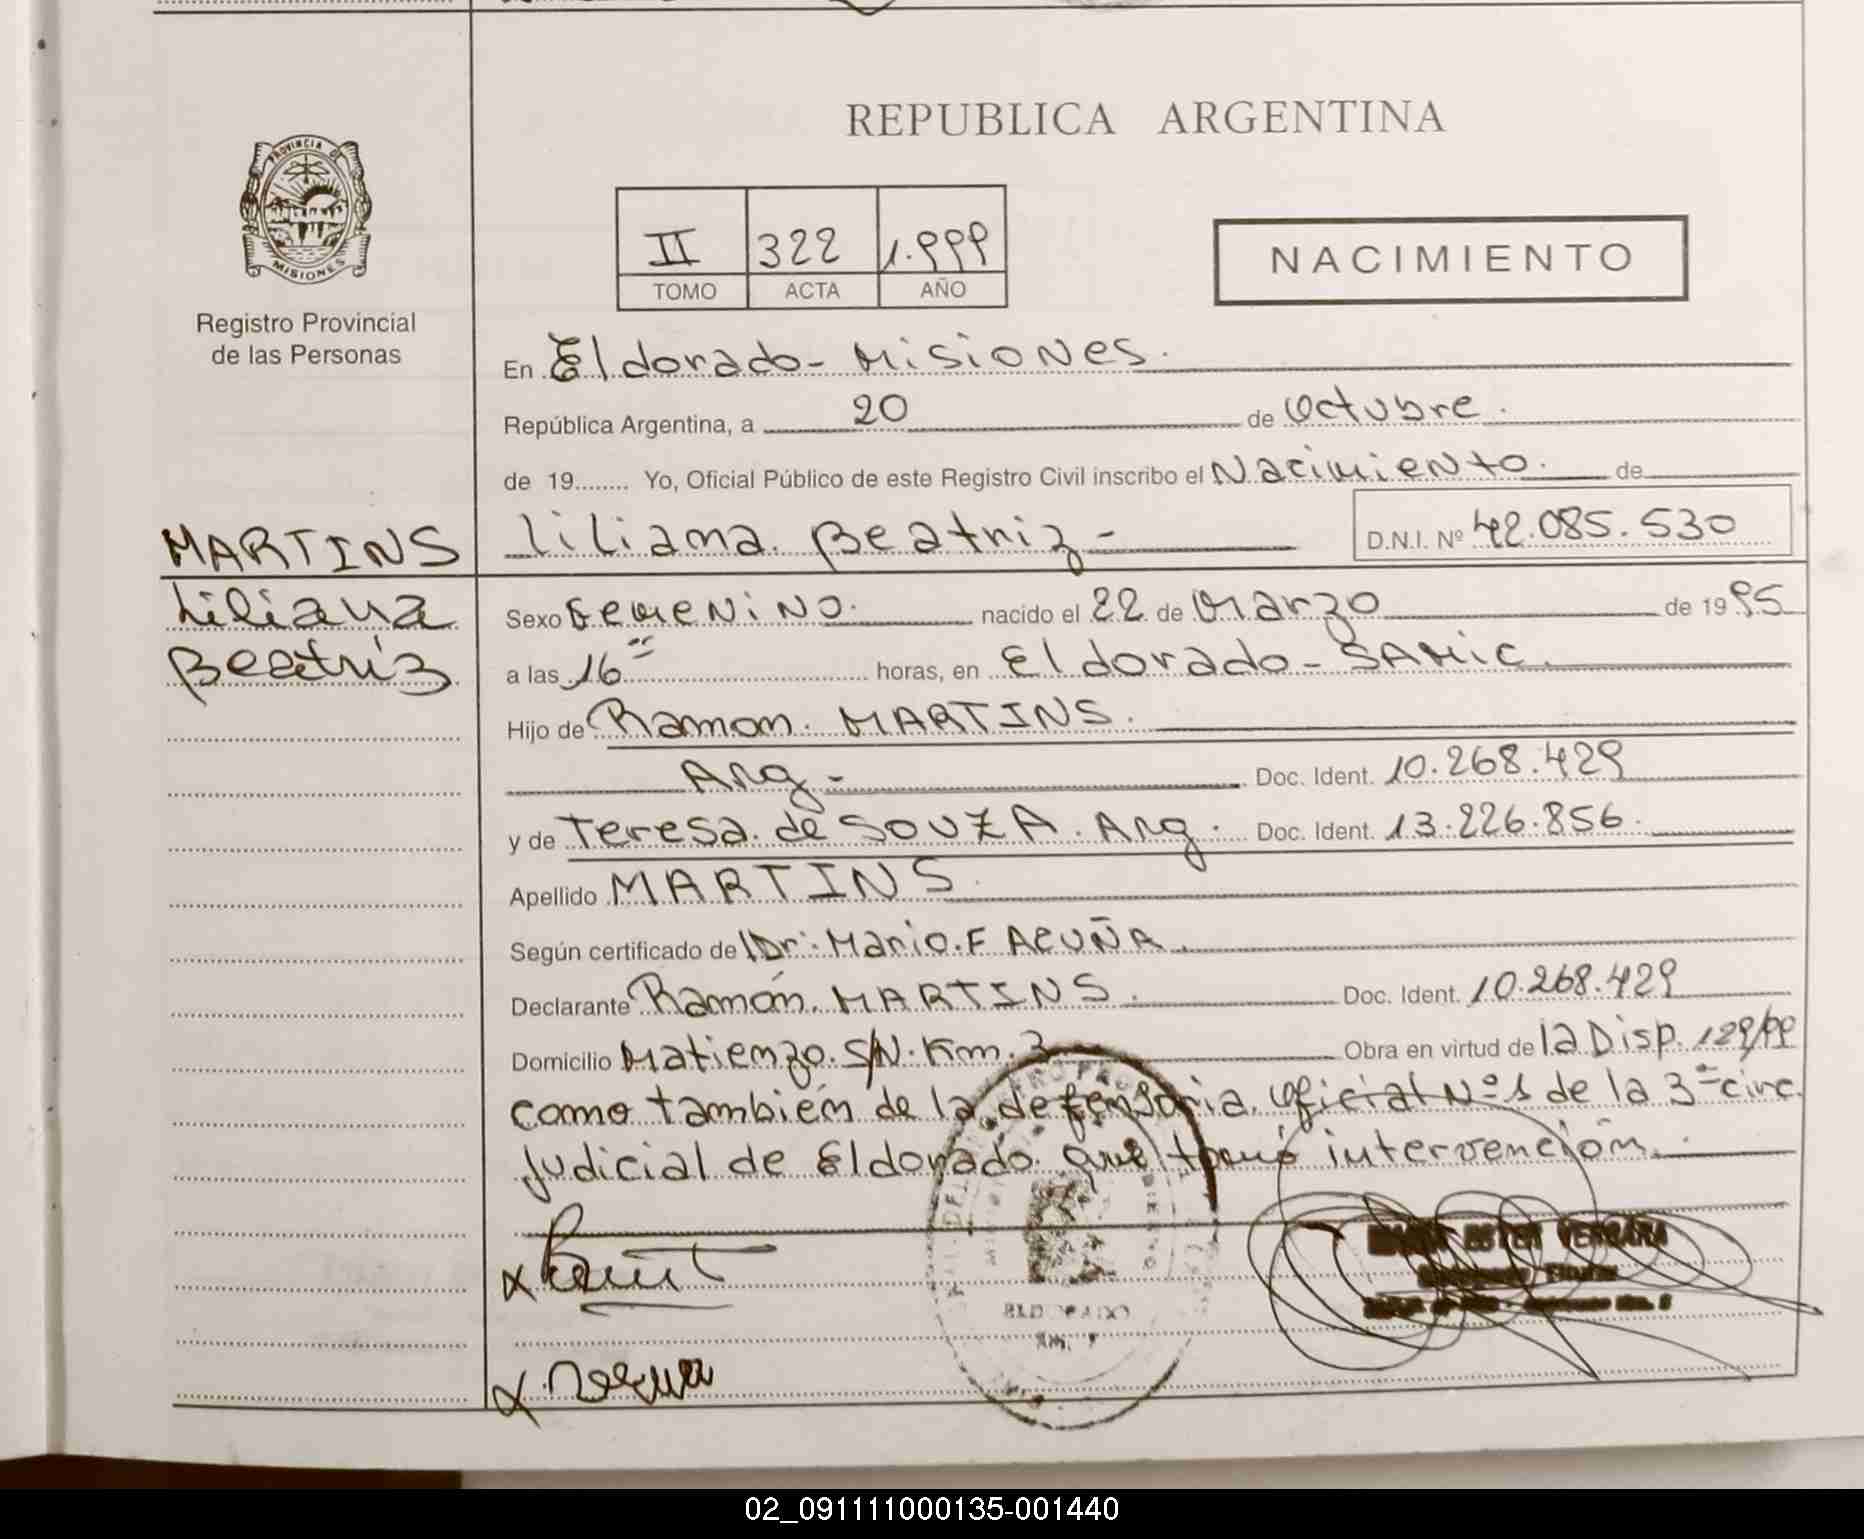 REPUBLICA ARGENTINA
PROVINCIA DE
MISIONES
Registro Provincial
de las Personas
II 322 1.999
TOMO ACTA AÑO
NACIMIENTO
En Eldorado - Misiones.
República Argentina, a 20 de Octubre.
de 19........ Yo, Oficial Público de este Registro Civil inscribo el Nacimiento. de
MARTINS
Liliana
Beatriz
Liliana Beatriz - D.N.I. Nº 42.085.530
Sexo Femenino. nacido el 22 de Marzo de 1995
a las 16 horas, en Eldorado - SAMIC.
Hijo de Ramon. MARTINS.
Arg - Doc. Ident. 10.268.429
y de Teresa. de SOUZA. Arg. Doc. Ident. 13.226.856.
Apellido MARTINS.
Según certificado de Dr: Mario. F ACUÑA.
Declarante Ramón. MARTINS. Doc. Ident. 10.268.429
Domicilio Matienzo. S/N. Km. 3 Obra en virtud de la Disp. 129/99
como también de la defensoria. Oficial Nº 1 de la 3ª circ.
Judicial de Eldorado. que tomó intervención.
ELDORADO
ESTER VERGARA
02_091111000135-001440